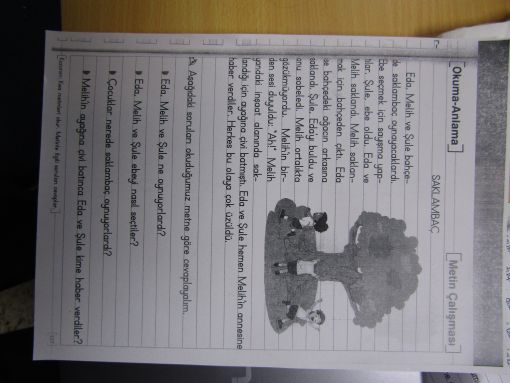 Okuma-Anlama
Metin Çalışması
SAKLAMBAÇ
Eda, Melih ve Şule bahçe-
de saklambaç oynayacaklardı.
Ebe seçmek için sayışma yap-
tılar. Şule ebe oldu. Eda ve
Melih saklandı. Melih saklan-
mak için bahçeden çıktı. Eda
ise bahçedeki ağacın arkasına
saklandı. Şule, Eda'yı buldu ve
onu sobeledi. Melih ortalıkta
gözükmüyordu. Melih'in bir-
den sesi duyuldu: "Ah!" Melih
yandaki inşaat alanında sak-
landığı için ayağına çivi batmıştı. Eda ve Şule hemen Melih'in annesine
haber verdiler. Herkes bu olaya çok üzüldü.
Aşağıdaki soruları okuduğumuz metne göre cevaplayalım.
Eda, Melih ve Şule ne oynuyorlardı?
Eda, Melih ve Şule ebeyi nasıl seçtiler?
Çocuklar nerede saklambaç oynuyorlardı?
Melih'in ayağına çivi batınca Eda ve Şule kime haber verdiler?
Kazanım: Kısa metinleri okur. Metinle ilgili soruları cevaplar.